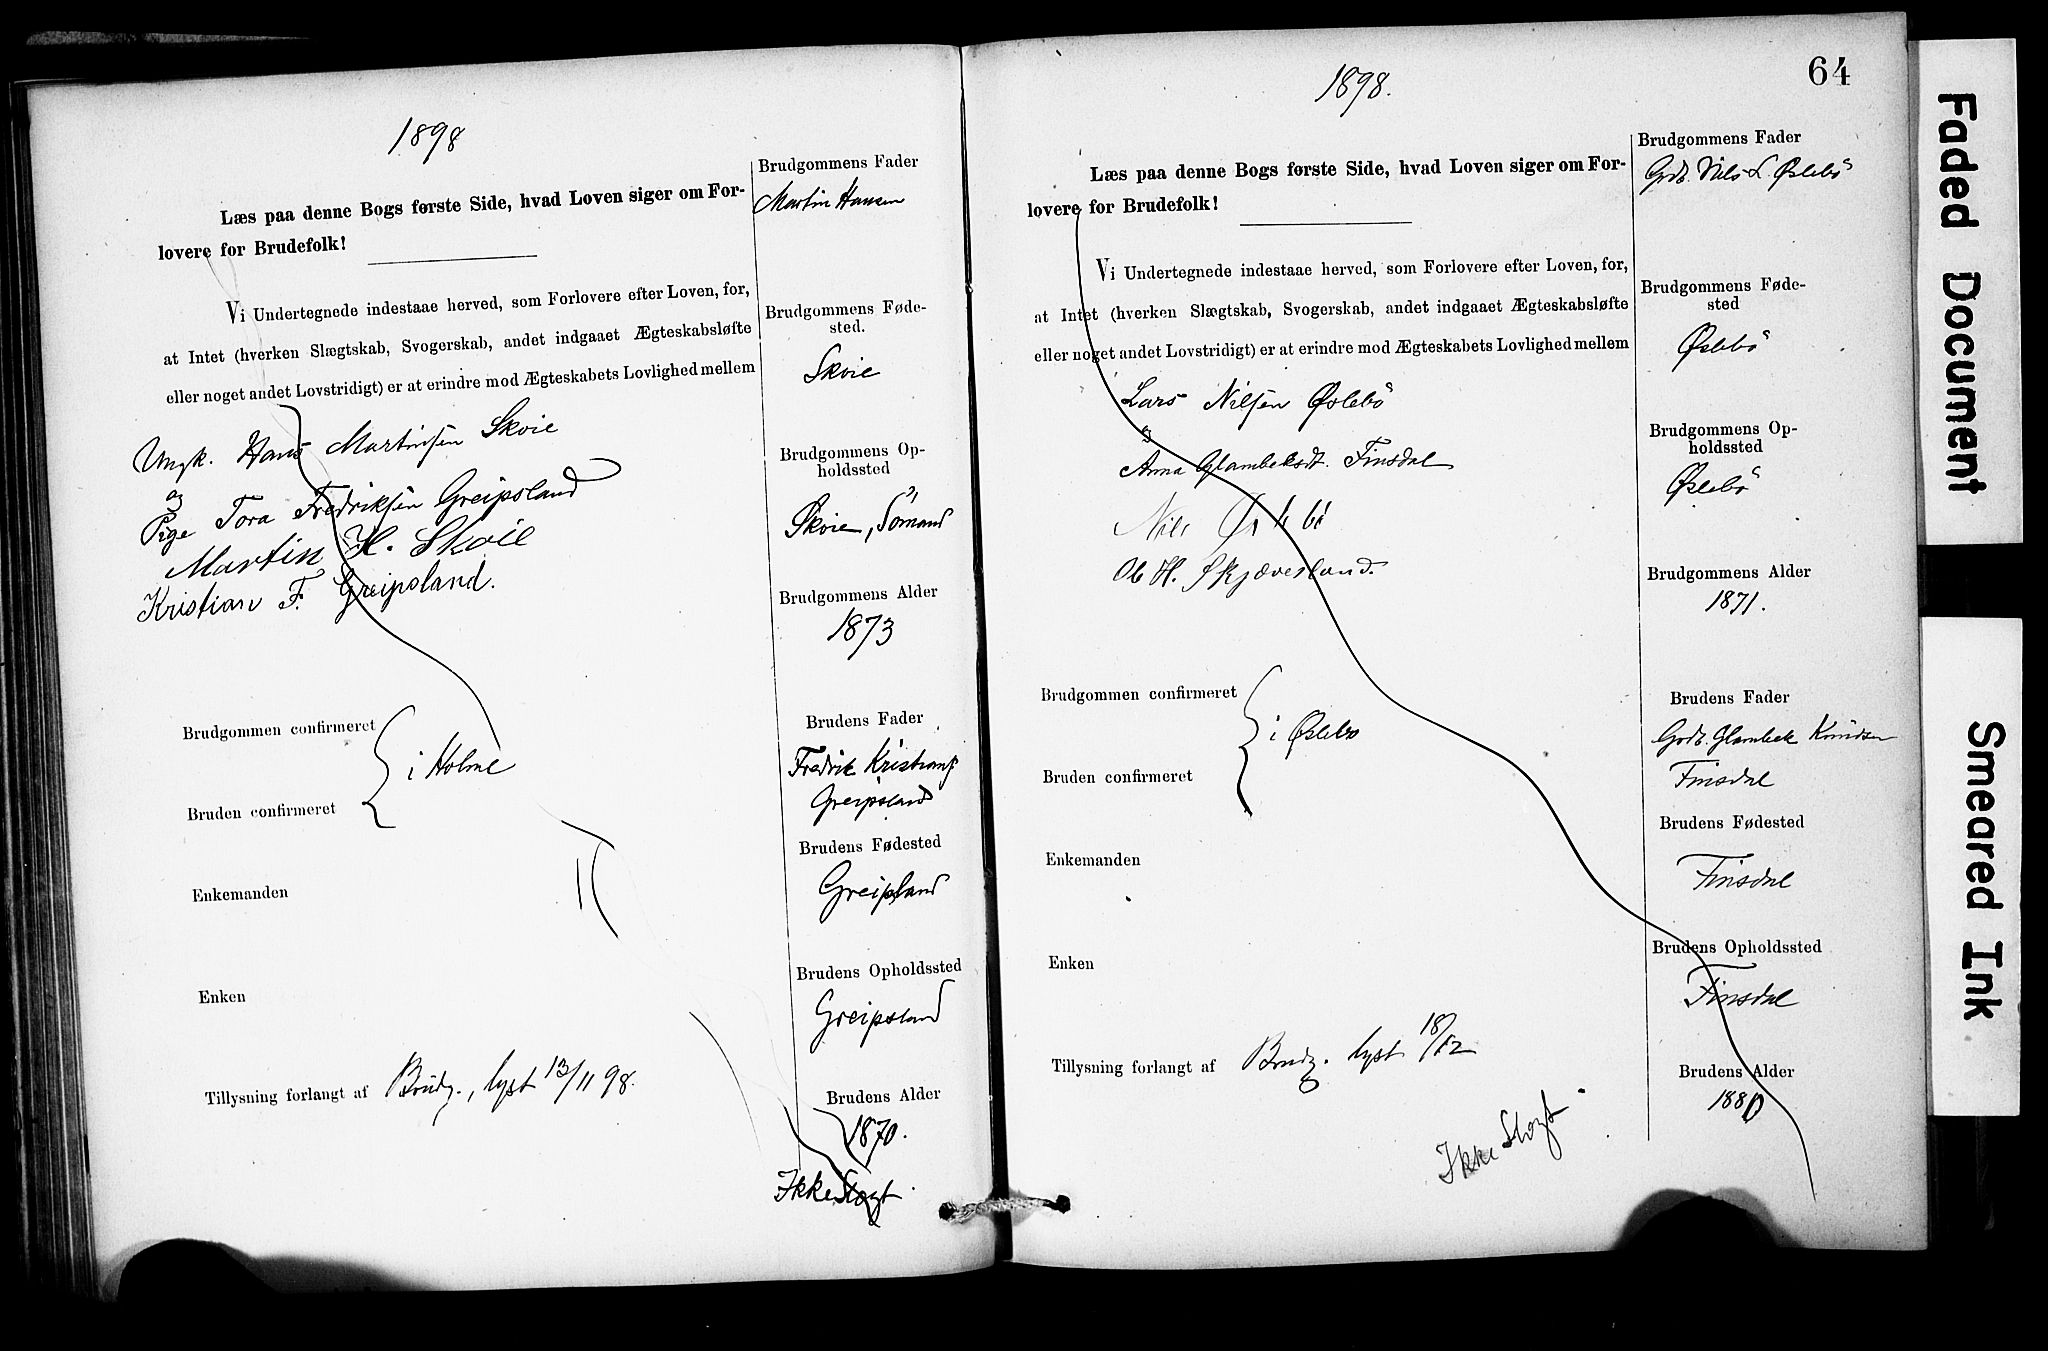 1898
Læs paa denne Bogs første Side, hvad Loven siger om For-
lovere for Brudefolk!
Vi Undertegnede indestaae herved, som Forlovere efter Loven, for,
at Intet (hverken Slægtskab, Svogerskab, andet indgaaet Ægteskabsløfte
eller noget andet Lovstridigt) er at erindre mod Ægteskabets Lovlighed mellem
Ungk. Hans Martinsen Skoie
og
Pige Tora Fredriksen Greipsland
Martin H. Skoie
Kristian F. Greipsland.
Brudgommen confirmeret
i Holme
Bruden confirmeret
Enkemanden
Enken
Tillysning forlangt af Brudg., lyst 13/11 98.
Brudgommens Fader
Martin Hansen
Brudgommens Føde-
sted.
Skoie
Brudgommens Op-
holdssted
Skoie, Sömand
Brudgommens Alder
1873
Brudens Fader
Fredrik Kristians
Greipsland
Brudens Fødested
Greipsland
Brudens Opholdssted
Greipsland
Brudens Alder
1870.
Ikke Slagt.
64
1898.
Læs paa denne Bogs første Side, hvad Loven siger om For-
lovere for Brudefolk!
Vi Undertegnede indestaae herved, som Forlovere efter Loven, for,
at Intet (hverken Slægtskab, Svogerskab, andet indgaaet Ægteskabsløfte
eller noget andet Lovstridigt) er at erindre mod Ægteskabets Lovlighed mellem
Lars Nilsen Øslebö
og
Anna Glambeksdt. Finsdal
Nils Øslebö
Ol H. Skjævesland.
Brudgommen confirmeret
i Øslebö
Bruden confirmeret
Enkemanden
Enken
Tillysning forlangt af Brudg. lyst 18/12
Ikke Slagt
Brudgommens Fader
Grdb. Nils L. Øslebö
Brudgommens Føde-
sted
Øslebö
Brudgommens Op-
holdssted
Øslebö
Brudgommens Alder
1871.
Brudens Fader
Grdb. Glambek Knudsen
Finsdal
Brudens Fødested
Finsdal
Brudens Opholdssted
Finsdal
Brudens Alder
1880
Faded Document
Smeared Ink